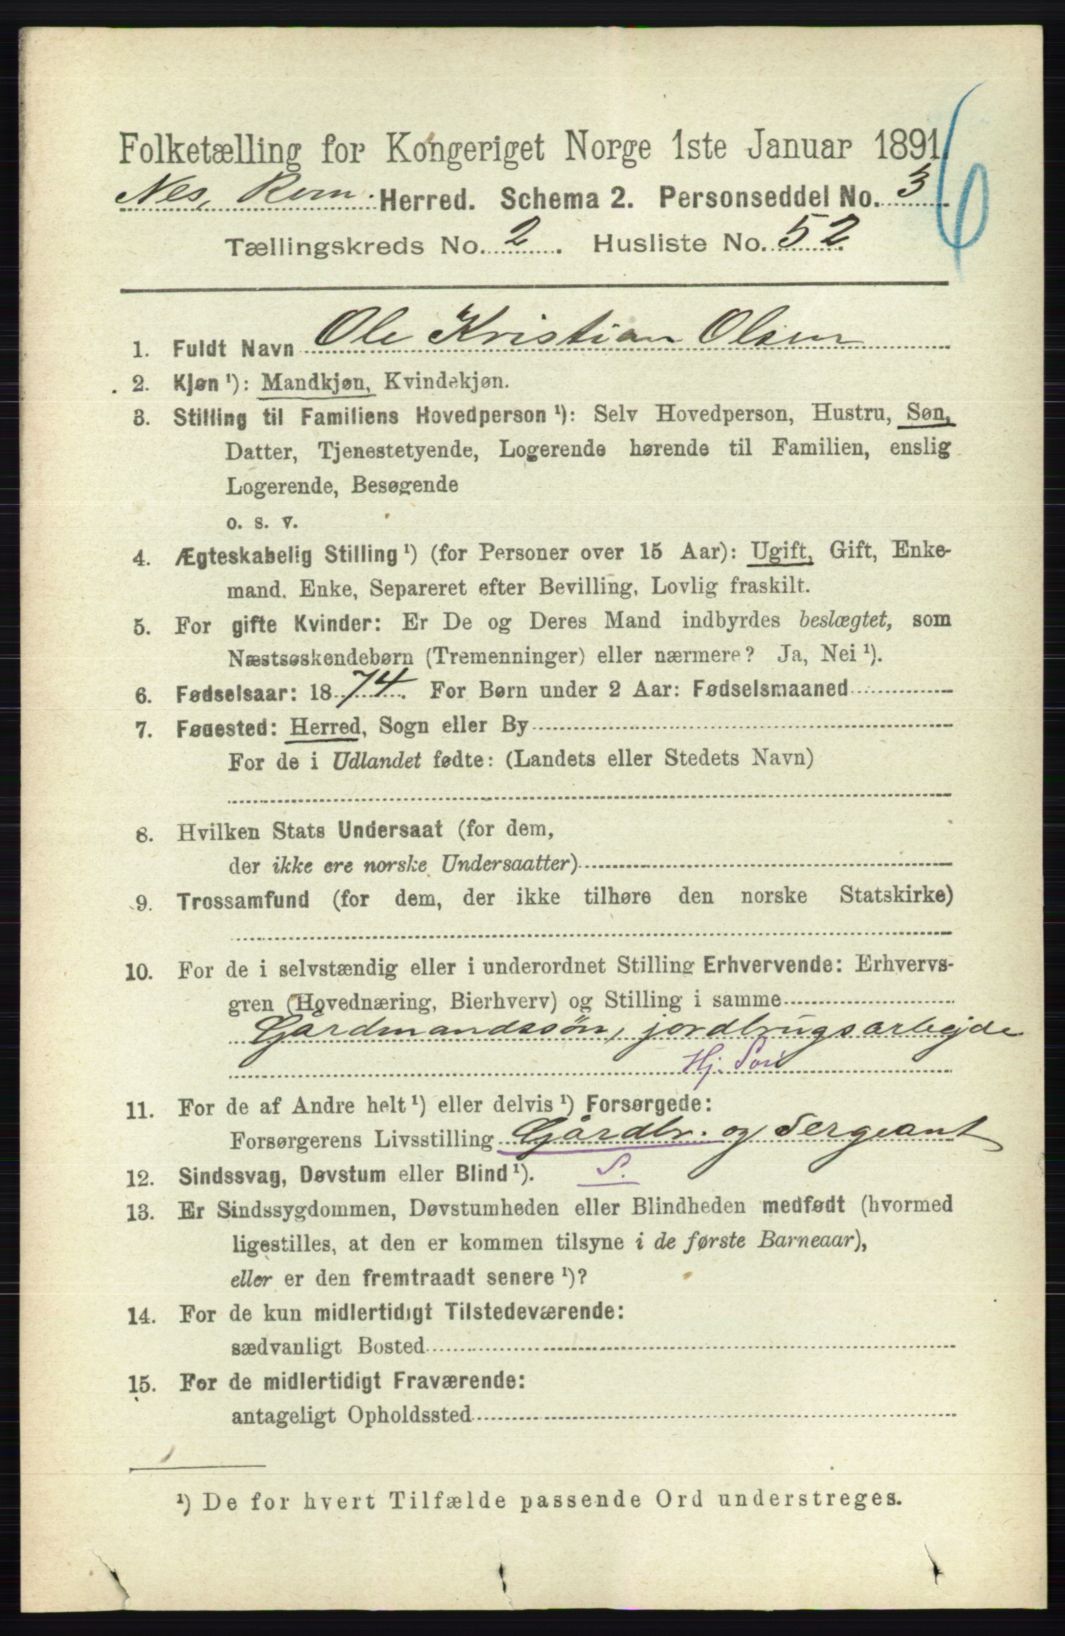 Folketælling for Kongeriget Norge 1ste Januar 1891.
6
Nes, Rom. Herred. Schema 2. Personseddel No. 3
Tællingskreds No. 2. Husliste No. 52
1. Fuldt Navn Ole Kristian Olsen
2. Kjøn ¹): Mandkjøn, Kvindekjøn.
3. Stilling til Familiens Hovedperson ¹): Selv Hovedperson, Hustru, Søn,
Datter, Tjenestetyende, Logerende hørende til Familien, enslig
Logerende, Besøgende
o. s. v.
4. Ægteskabelig Stilling ¹) (for Personer over 15 Aar): Ugift, Gift, Enke-
mand. Enke, Separeret efter Bevilling, Lovlig fraskilt.
5. For gifte Kvinder: Er De og Deres Mand indbyrdes beslægtet, som
Næstsøskendebørn (Tremenninger) eller nærmere? Ja, Nei ¹).
6. Fødselsaar: 1874. For Børn under 2 Aar: Fødselsmaaned
7. Fødested: Herred, Sogn eller By
For de i Udlandet fødte: (Landets eller Stedets Navn)
8. Hvilken Stats Undersaat (for dem,
der ikke ere norske Undersaatter)
9. Trossamfund (for dem, der ikke tilhøre den norske Statskirke)
10. For de i selvstændig eller i underordnet Stilling Erhvervende: Erhvervs-
gren (Hovednæring, Bierhverv) og Stilling i samme
Gårdmandssøn, jordbrugsarbejde
Hj. Søn
11. For de af Andre helt ¹) eller delvis ¹) Forsørgede:
Forsørgerens Livsstilling Gårdbr. og Sergeant
12. Sindssvag, Døvstum eller Blind ¹). S.
13. Er Sindssygdommen, Døvstumheden eller Blindheden medfødt (hvormed
ligestilles, at den er kommen tilsyne i de første Barneaar),
eller er den fremtraadt senere ¹)?
14. For de kun midlertidigt Tilstedeværende:
sædvanligt Bosted
15. For de midlertidigt Fraværende:
antageligt Opholdssted
¹) De for hvert Tilfælde passende Ord understreges.